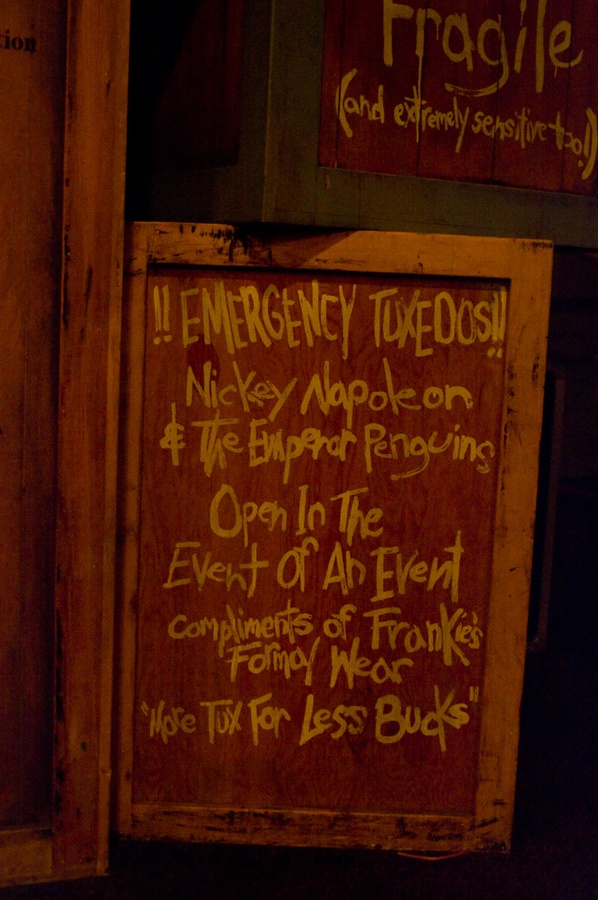 tion
Fragile
(and extremely sensitive too!)
!! EMERGENCY TUXEDOS!!
Nickey Napoleon
& The Emperor Penguins
Open In The
Event Of An Event
compliments of Frankie's
Formal Wear
"More Tux For Less Bucks"